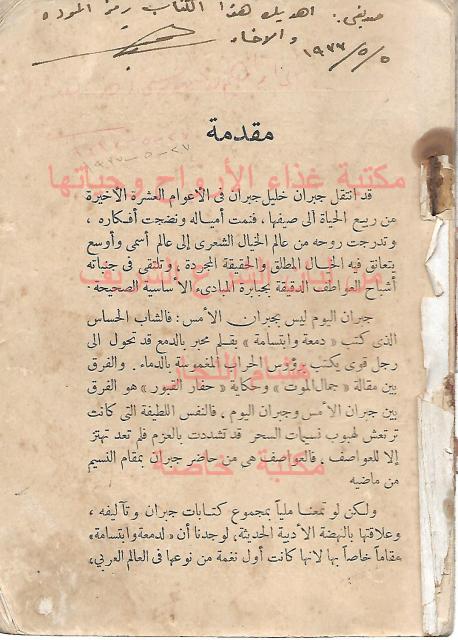 صديقي: اهديك هذا الكتاب رمز الموده
والاخاء
١٩٣٢/٥/٥
مقدمة
مكتبة غذاء الأرواح وحياتها
قد انتقل جبران خليل جبران في الأعوام العشرة الأخيرة
من ربيع الحياة الى صيفها ، فنمت أمياله ونضجت أفكاره ،
وتدرجت روحه من عالم الخيال الشعرى إلى عالم أسمى وأوسع
يتعانق فيه الجمال المطلق والحقيقة المجردة ، وتلتقى في جنباته
أشباح العواطف الدقيقة بجبابرة المبادىء الأساسية الصحيحة .
جبران اليوم ليس بجبران الأمس : فالشاب الحساس
الذى كتب « دمعة وابتسامة » بقلم محبر بالدمع قد تحول الى
رجل قوى يكتب برؤوس الحراب المغموسة بالدماء . والفرق
هشام النجار
بين مقالة « جمال الموت » وحكاية « حفار القبور » هو الفرق
بين جبران الأمس وجبران اليوم . فالنفس اللطيفة التى كانت
ترتعش لهبوب نسيمات السحر قد تشددت بالعزم فلم تعد تهتز
إلا للعواصف . فالعواصف هى من حاضر جبران بمقام النسيم
مكتبة خاصة
من ماضيه
ولكن لو تمعنا ملياً بمجموع كتابات جبران وتآليفه ،
وعلاقتها بالنهضة الأدبية الحديثة، لوجدنا أن «لدمعة وابتسامة»
مقاماً خاصاً بها لانها كانت أول نغمة من نوعها في العالم العربي،